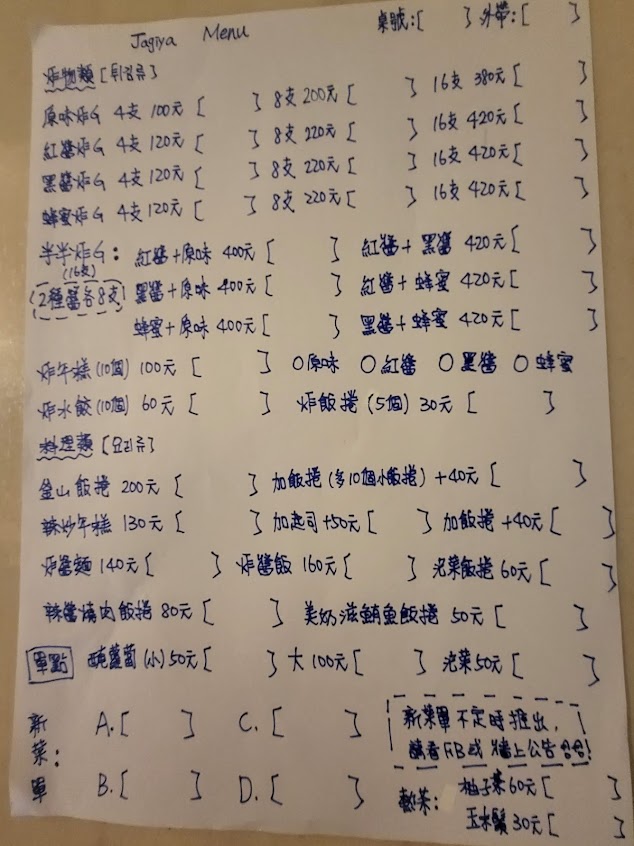 Jagiya Menu 桌號:[ ] 外帶:[ ]
炸物類 [튀김류]
原味炸G 4支 100元 [ ] 8支 200元 [ ] 16支 380元 [ ]
紅醬炸G 4支 120元 [ ] 8支 220元 [ ] 16支 420元 [ ]
黑醬炸G 4支 120元 [ ] 8支 220元 [ ] 16支 420元 [ ]
蜂蜜炸G 4支 120元 [ ] 8支 220元 [ ] 16支 420元 [ ]
半半炸G: 紅醬+原味 400元 [ ] 紅醬+黑醬 420元 [ ]
(16支)
(2種醬各8支) 黑醬+原味 400元 [ ] 紅醬+蜂蜜 420元 [ ]
蜂蜜+原味 400元 [ ] 黑醬+蜂蜜 420元 [ ]
炸年糕 (10個) 100元 [ ] ○原味 ○紅醬 ○黑醬 ○蜂蜜
炸水餃 (10個) 60元 [ ] 炸飯捲 (5個) 30元 [ ]
料理類 [요리류]
釜山飯捲 200元 [ ] 加飯捲 (多10個小飯捲) +40元 [ ]
辣炒年糕 130元 [ ] 加起司 +50元 [ ] 加飯捲 +40元 [ ]
炸醬麵 140元 [ ] 炸醬飯 160元 [ ] 泡菜飯捲 60元 [ ]
辣醬燒肉飯捲 80元 [ ] 美奶滋鮪魚飯捲 50元 [ ]
單點 醃蘿蔔 (小) 50元 [ ] 大 100元 [ ] 泡菜 50元 [ ]
新菜單: A. [ ] C. [ ]
B. [ ] D. [ ]
新菜單不定時推出,
請看FB或牆上公告 哈哈!
軟茶: 柚子茶 60元 [ ]
玉米鬚 30元 [ ]